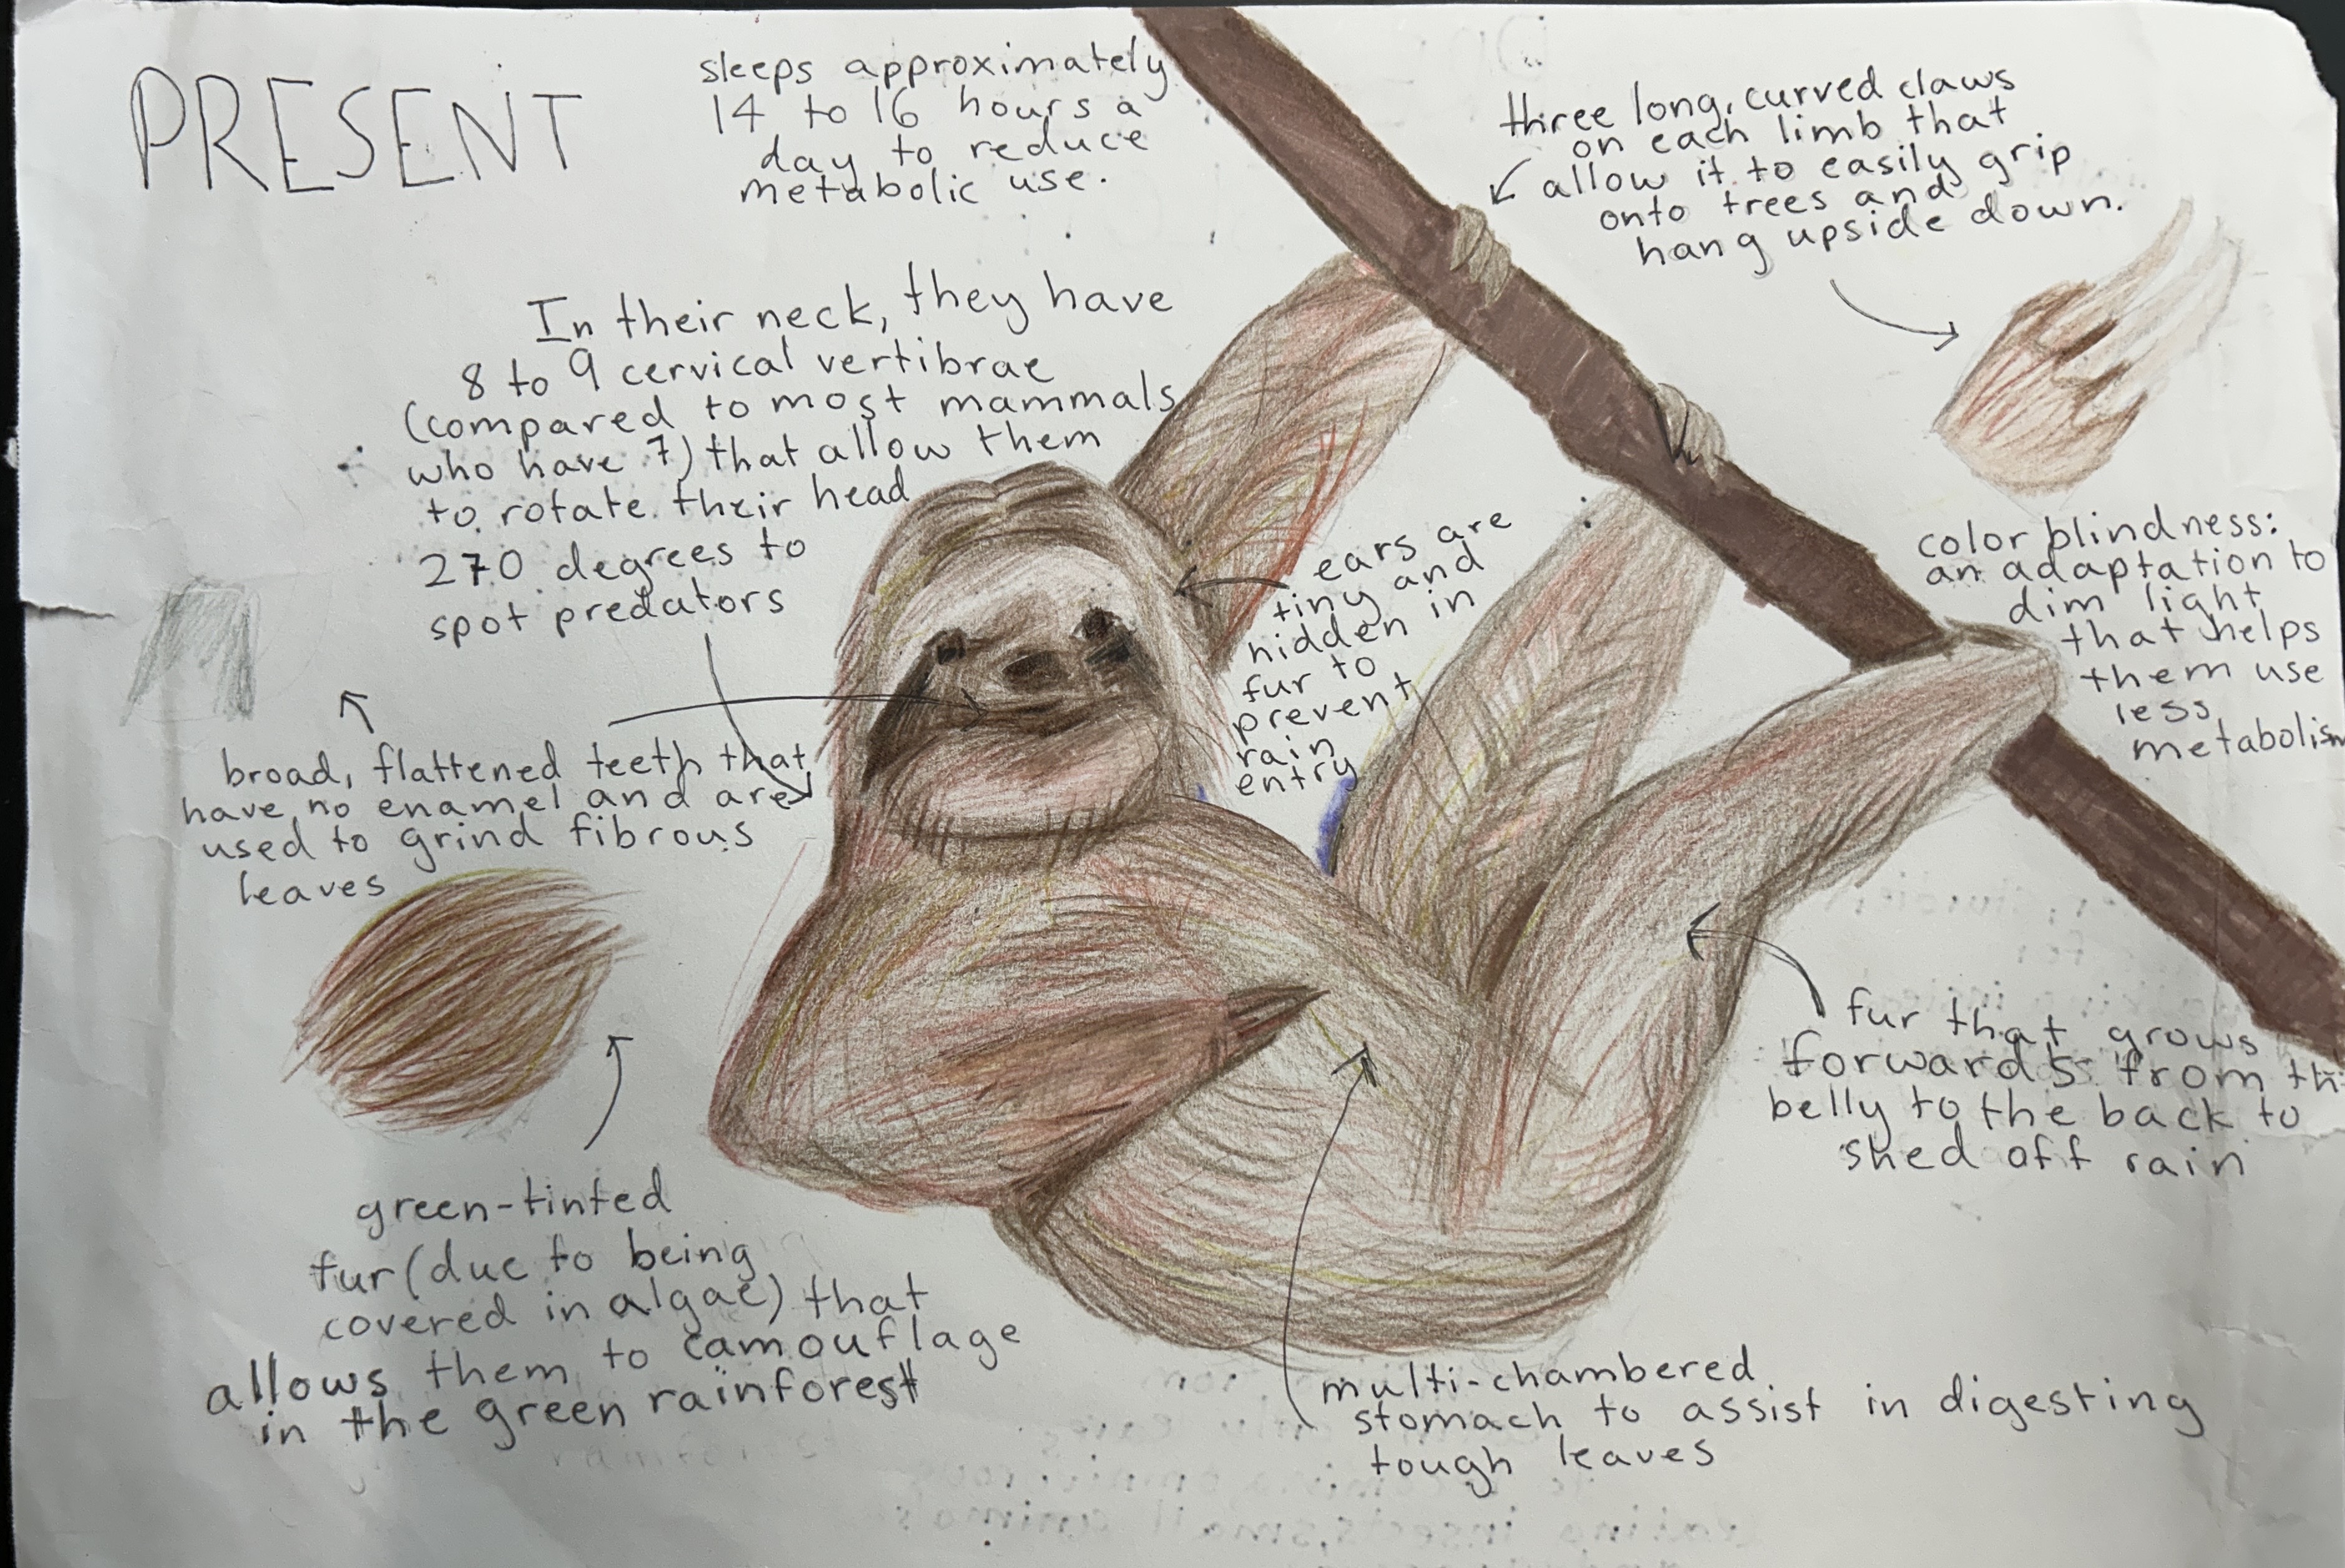 PRESENT
sleeps approximately
14 to 16 hours a
day to reduce
metabolic use.
three long, curved claws
on each limb that
allow it to easily grip
onto trees and
hang upside down.
In their neck, they have
8 to 9 cervical vertibrae
(compared to most mammals
who have 7) that allow them
to rotate their head
270 degrees to
spot predators
ears are
tiny and
hidden in
fur to
prevent
rain
entry
color blindness:
an adaptation to
dim light
that helps
them use
less
metabolism
broad, flattened teeth that
have no enamel and are
used to grind fibrous
leaves
fur that grows
forwards from
belly to the back to
shed off rain
green-tinted
fur (due to being
covered in algae) that
allows them to camouflage
in the green rainforest
multi-chambered
stomach to assist in digesting
tough leaves